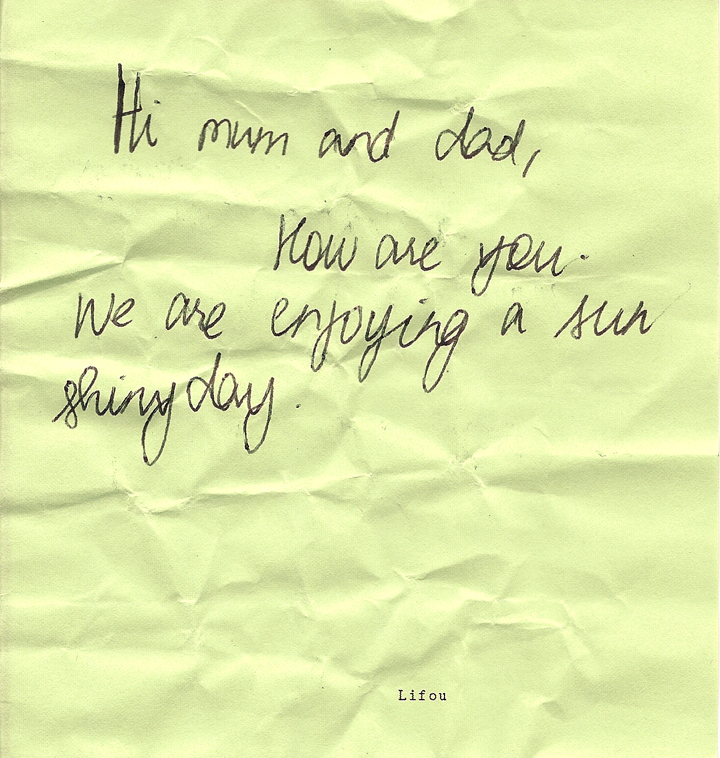 Hi mum and dad,
How are you.
We are enjoying a sun
shiny day.
Lifou